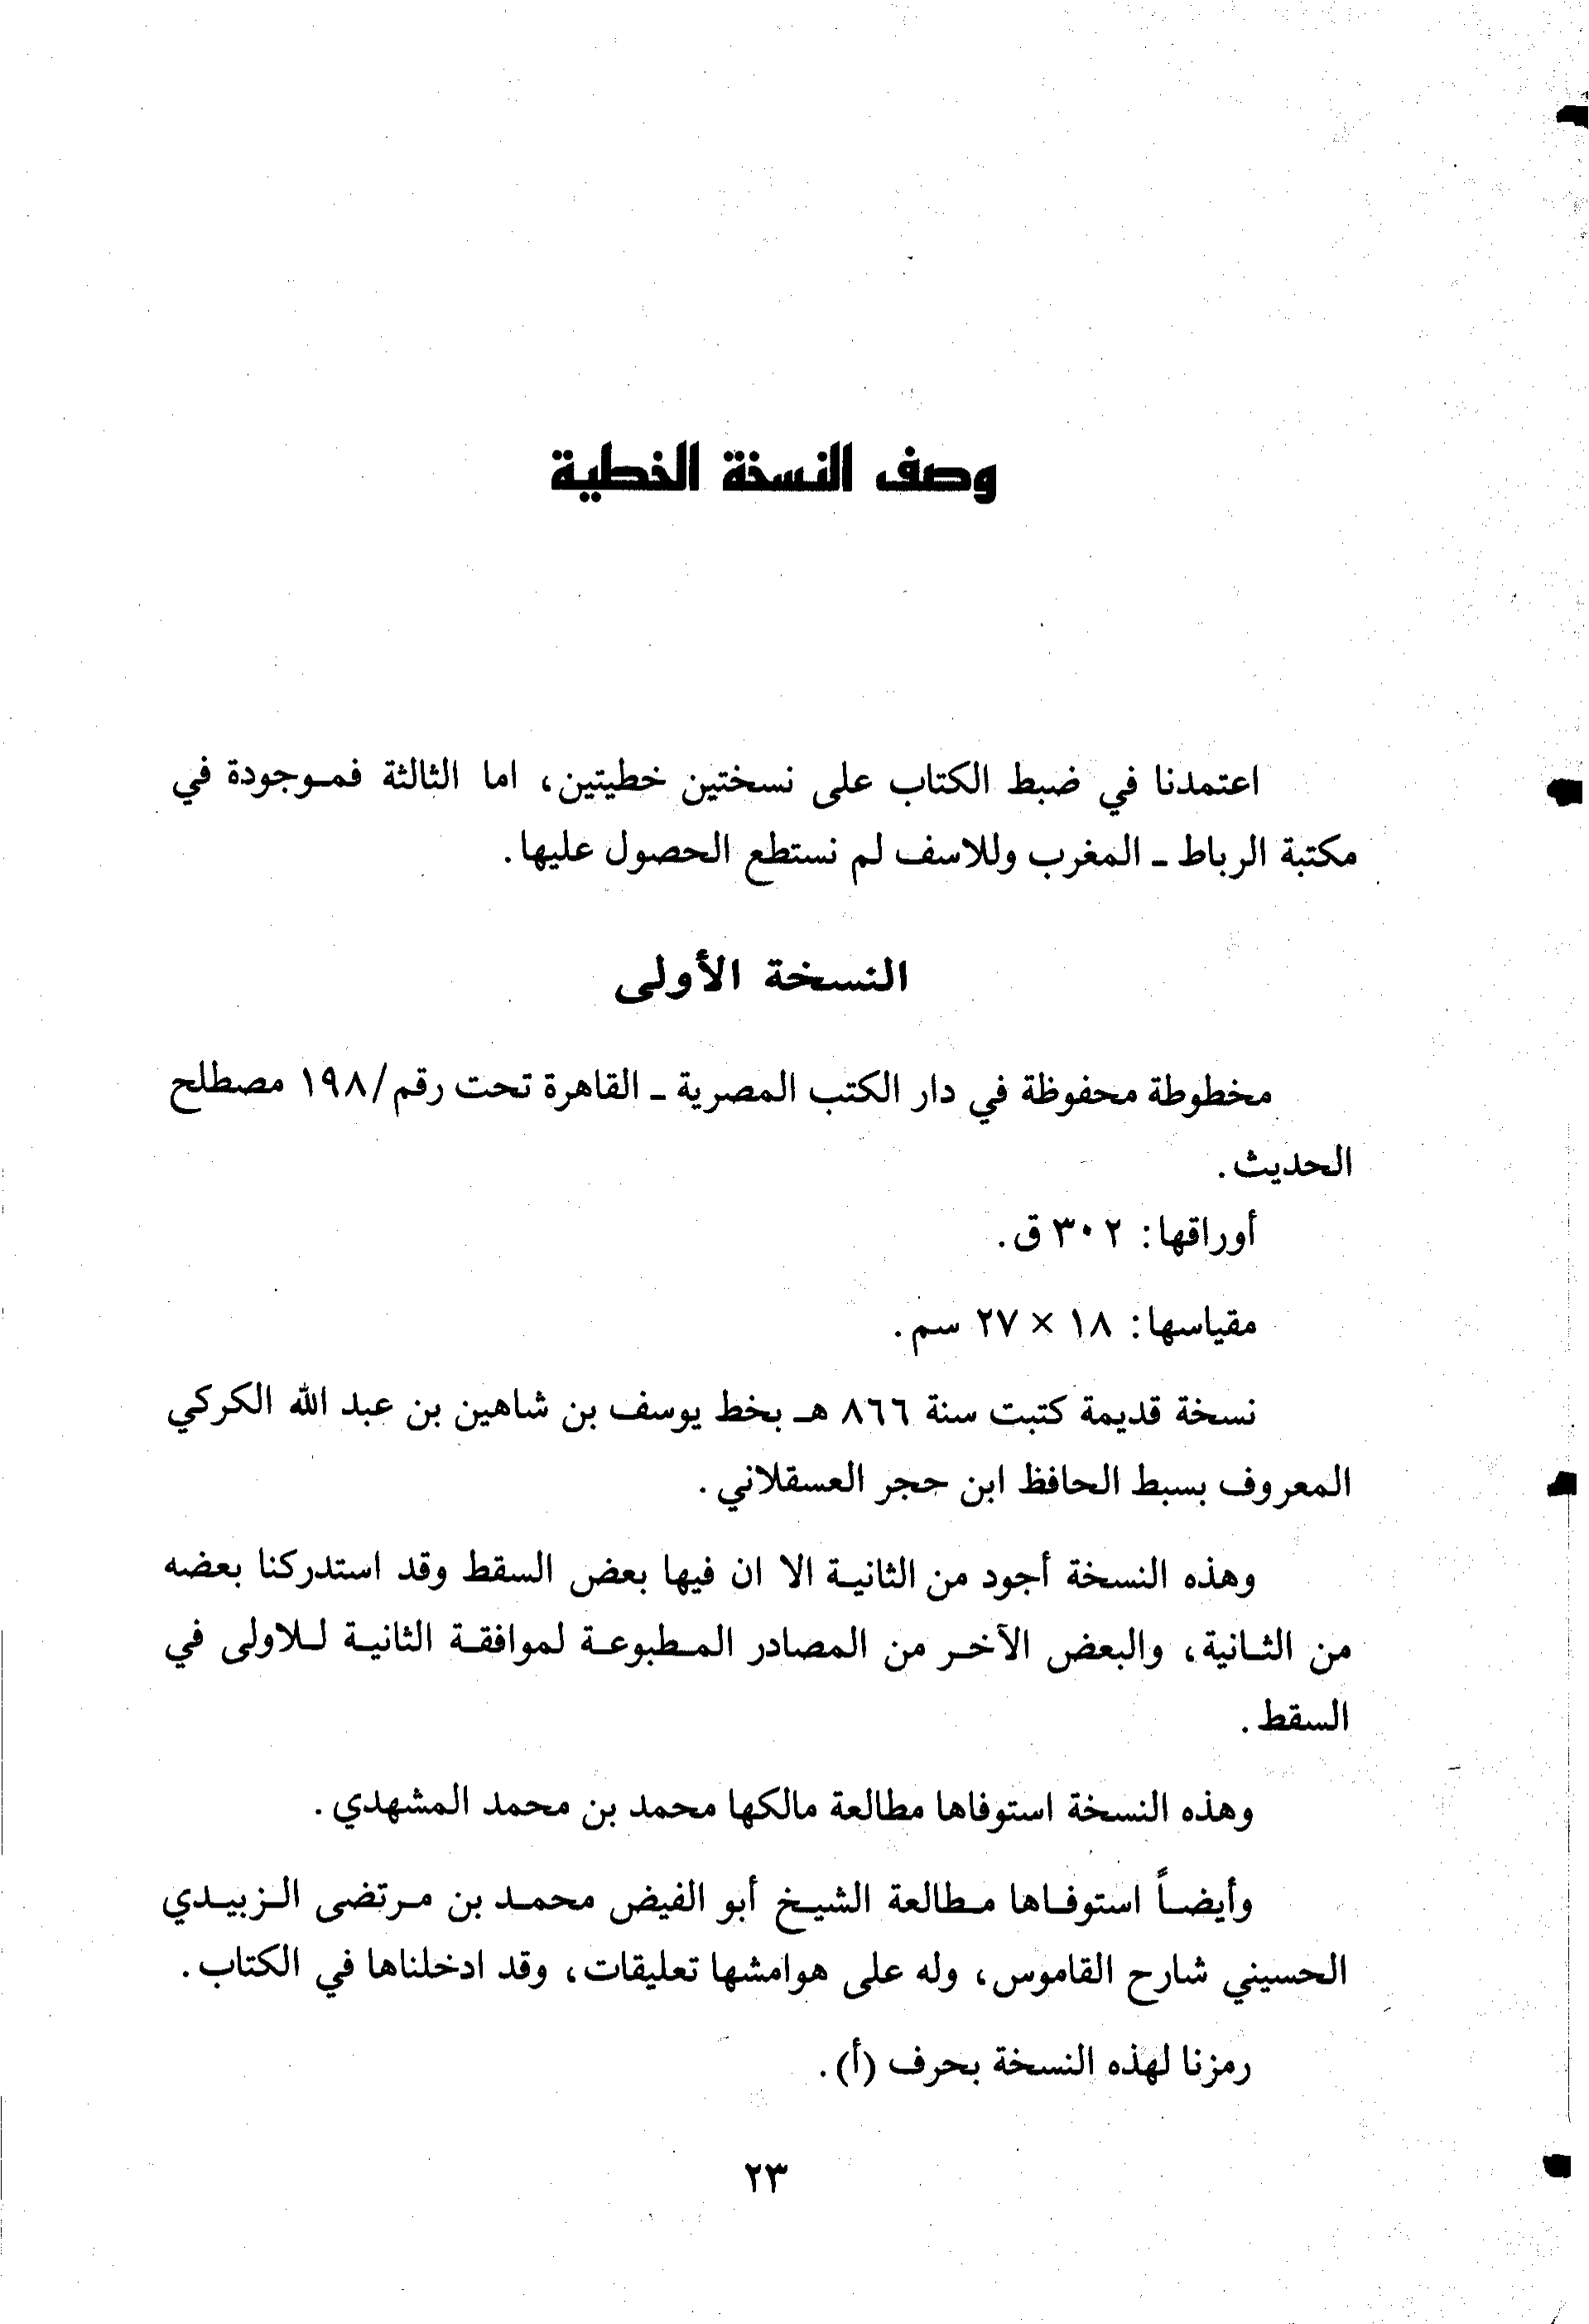 وصف النسخة الخطية
اعتمدنا في ضبط الكتاب على نسختين خطيتين، اما الثالثة فموجودة في
مكتبة الرباط ـ المغرب وللاسف لم نستطع الحصول عليها.
النسخة الأولى
مخطوطة محفوظة في دار الكتب المصرية ـ القاهرة تحت رقم/١٩٨ مصطلح
الحديث.
أوراقها: ٣٠٢ ق.
مقياسها: ١٨ × ٢٧ سم.
نسخة قديمة كتبت سنة ٨٦٦ هـ بخط يوسف بن شاهين بن عبد الله الكركي
المعروف بسبط الحافظ ابن حجر العسقلاني.
وهذه النسخة أجود من الثانية الا ان فيها بعض السقط وقد استدركنا بعضه
من الثانية، والبعض الآخر من المصادر المطبوعة لموافقة الثانية للاولى في
السقط.
وهذه النسخة استوفاها مطالعة مالكها محمد بن محمد المشهدي.
وأيضاً استوفاها مطالعة الشيخ أبو الفيض محمد بن مرتضى الزبيدي
الحسيني شارح القاموس، وله على هوامشها تعليقات، وقد ادخلناها في الكتاب.
رمزنا لهذه النسخة بحرف (أ).
٢٣